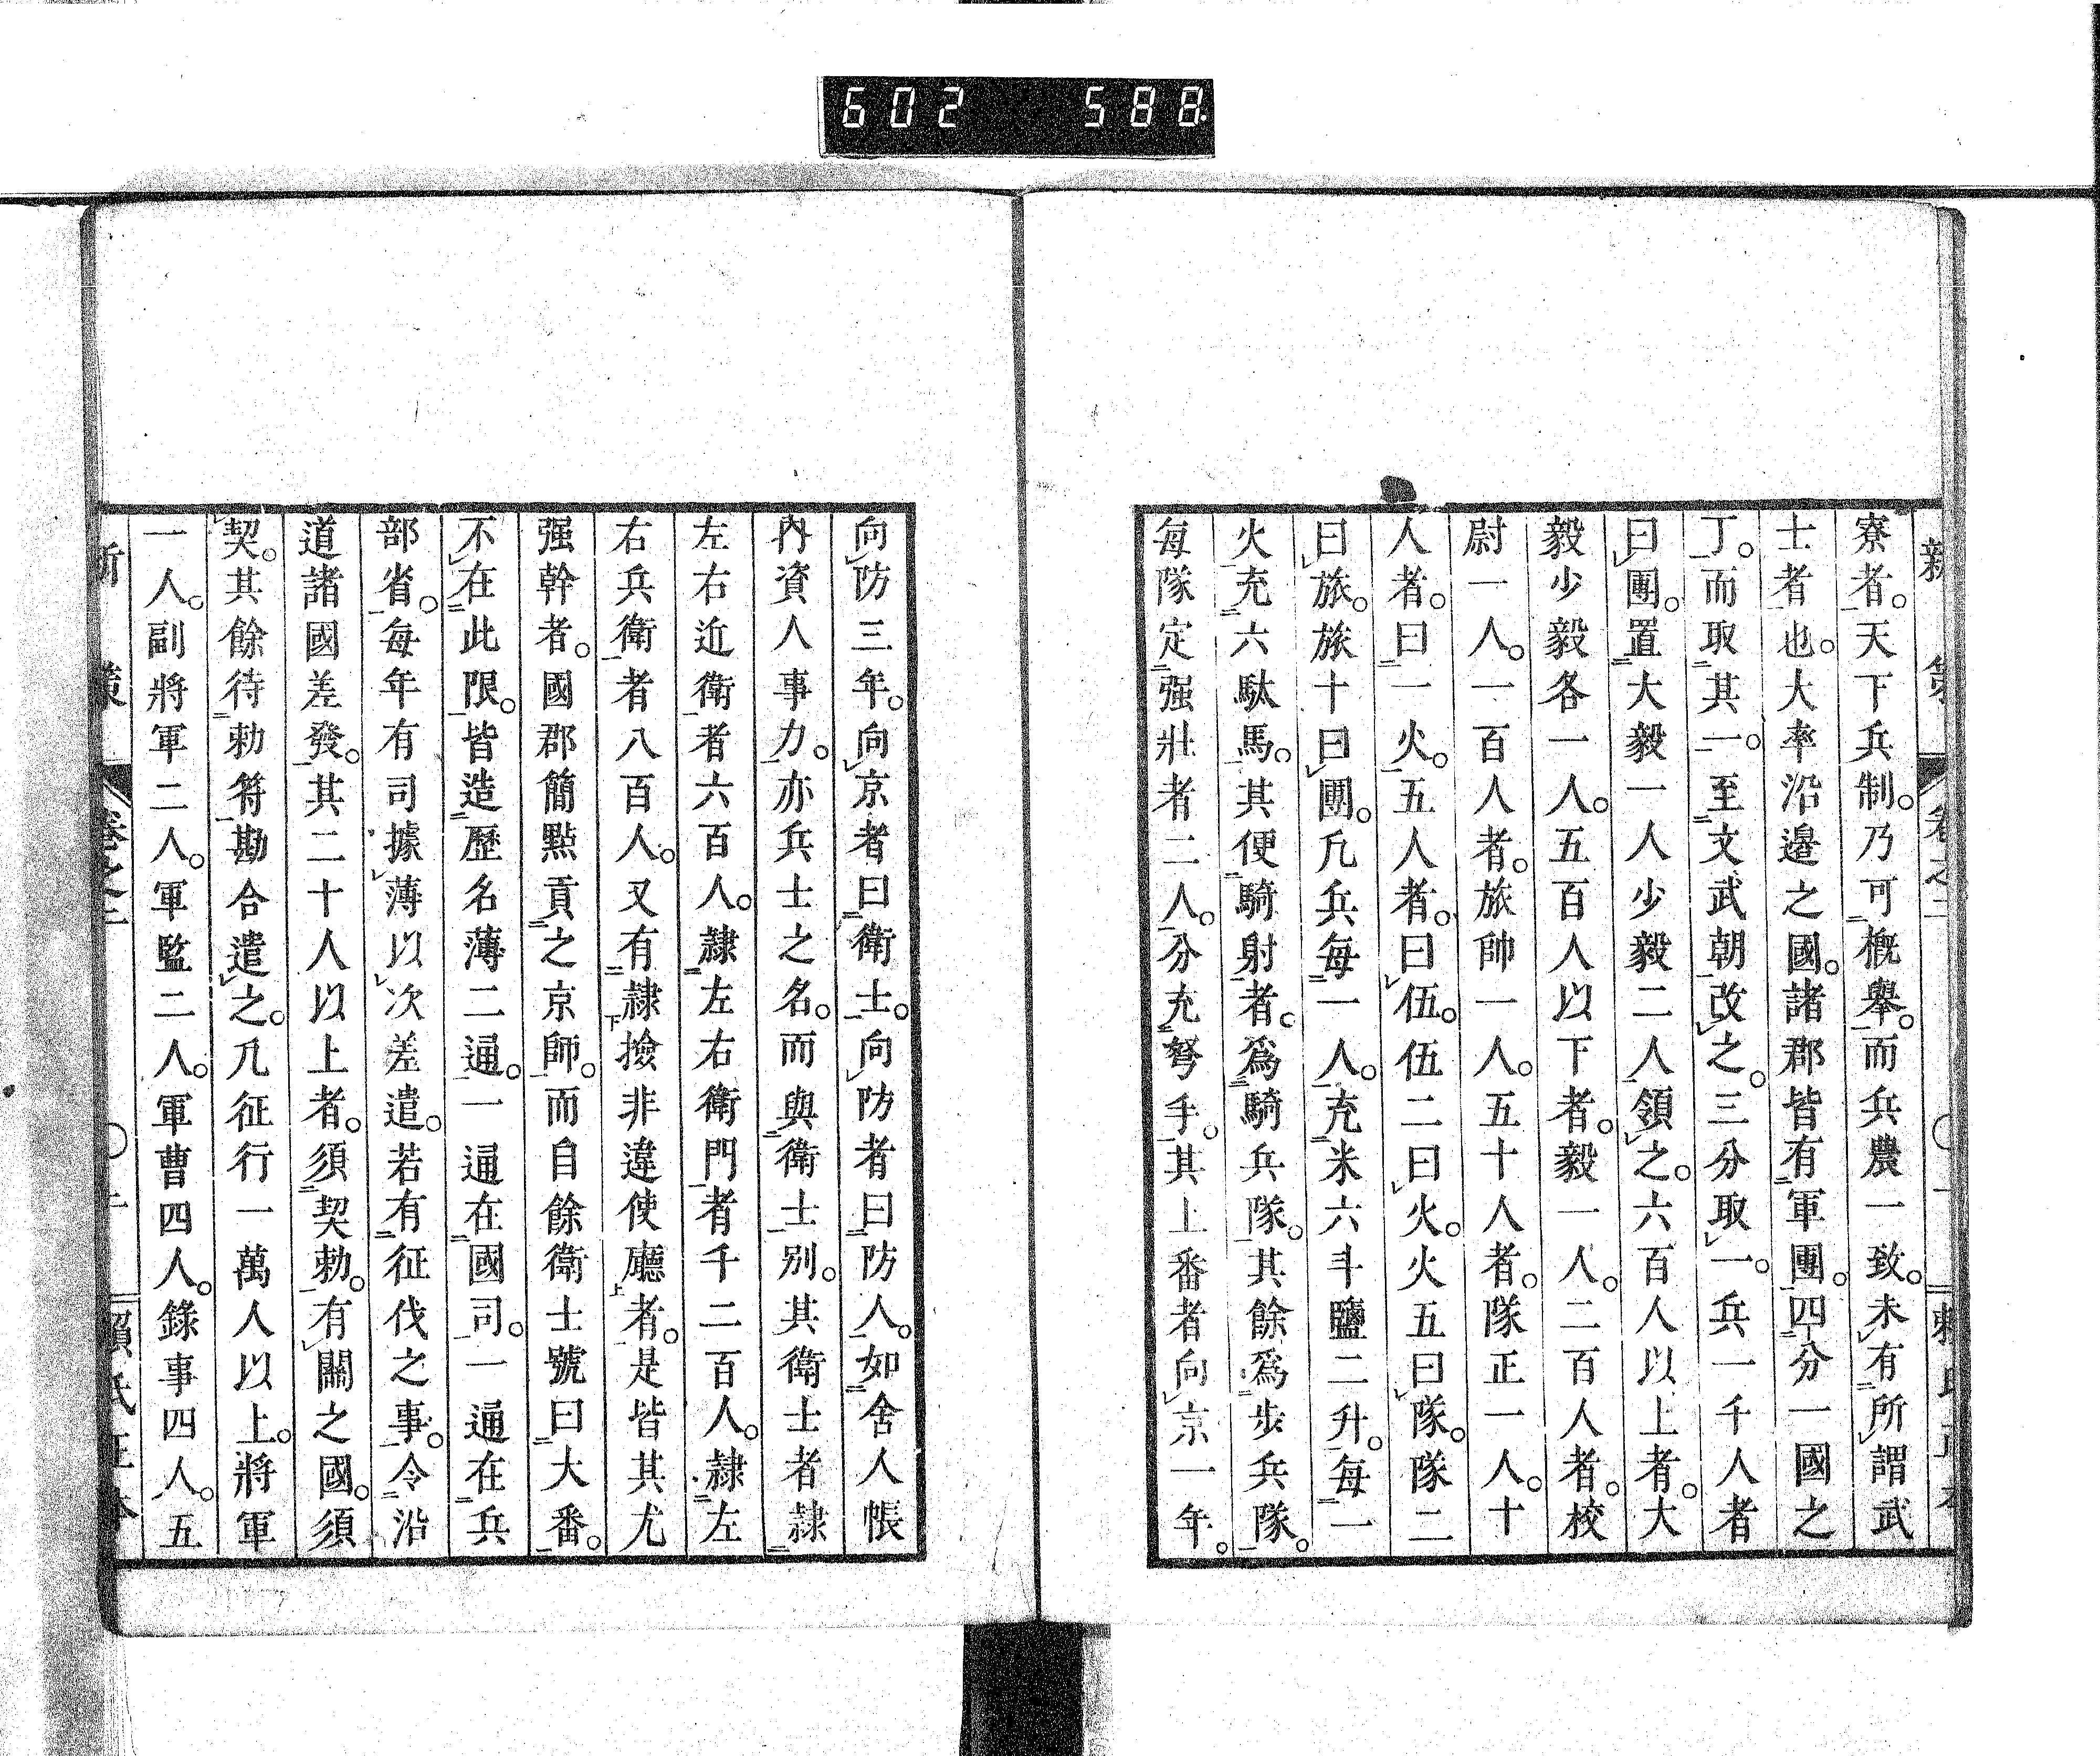 602 588
新策 卷之二
寮者。天下兵制。乃可概舉。而兵農一致。未有所謂武
士者也。大率沿邊之國。諸郡皆有軍團。四分一國之
丁。而取其一。至文武朝改之。三分取一。兵一千人者
曰團。置大毅一人少毅二人領之。六百人以上者。大
毅少毅各一人。五百人以下者。毅一人。二百人者。校
尉一人。一百人者。旅帥一人。五十人者。隊正一人。十
人者。曰一火。五人者。曰伍。伍二曰火。火五曰隊。隊二
曰旅。旅十曰團。凢兵每一人。充米六斗鹽二升。每一
火充六馱馬。其便騎射者。爲騎兵隊。其餘爲步兵隊。
每隊定强壯者二人。分充弩手。其上番者向京一年。
向防三年。向京者曰衛士。向防者曰防人。如舍人帳
內資人事力。亦兵士之名。而與衛士別。其衛士者隷
左右近衛者六百人。隷左右衛門者千二百人。隷左
右兵衛者八百人。又有隷撿非違使廳者。是皆其尤
强幹者。國郡簡㸃貢之京師。而自餘衛士號曰大番。
不在此限。皆造歷名薄二通。一通在國司。一通在兵
部省。每年有司據薄以次差遣。若有征伐之事。令沿
道諸國差發。其二十人以上者。須契勅。有關之國。須
契。其餘待勅符勘合遣之。凢征行一萬人以上。將軍
一人。副將軍二人。軍監二人。軍曹四人。錄事四人。五
新策 卷之二 賴氏正本